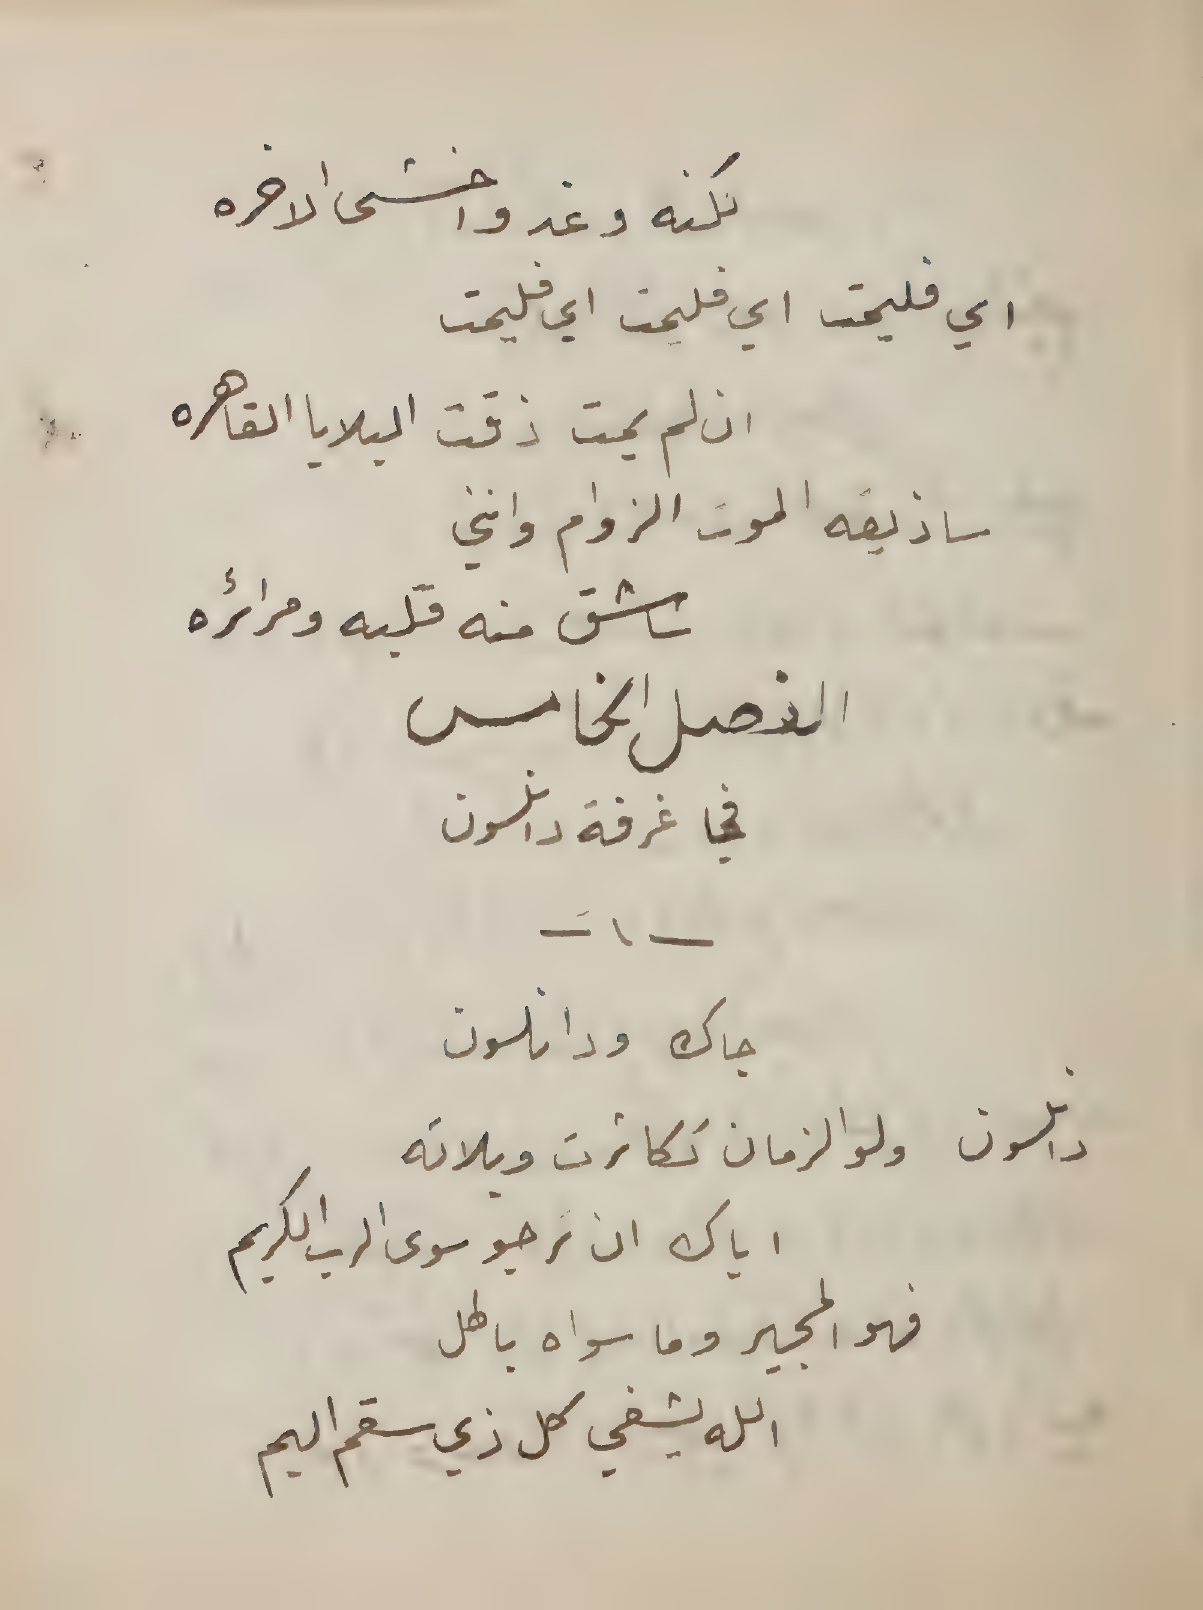 لكنه وغد واخشى الاخره
اي فليمت اي فليمت اي فليمت
ان لم يمت ذقت البلايا القاهره
ساذيقه الموت الزوام وانني
ساشق منه قلبه ومرائره
الفصل الخامس
في غرفة دانلسون
— ١ —
جاك ودانلسون
دانلسون ولو الزمان تكاثرت ويلاته
اياك ان ترجو سوى الرب الكريم
فهو المجير وما سواه باطل
الله يشفي كل ذي سقم اليم